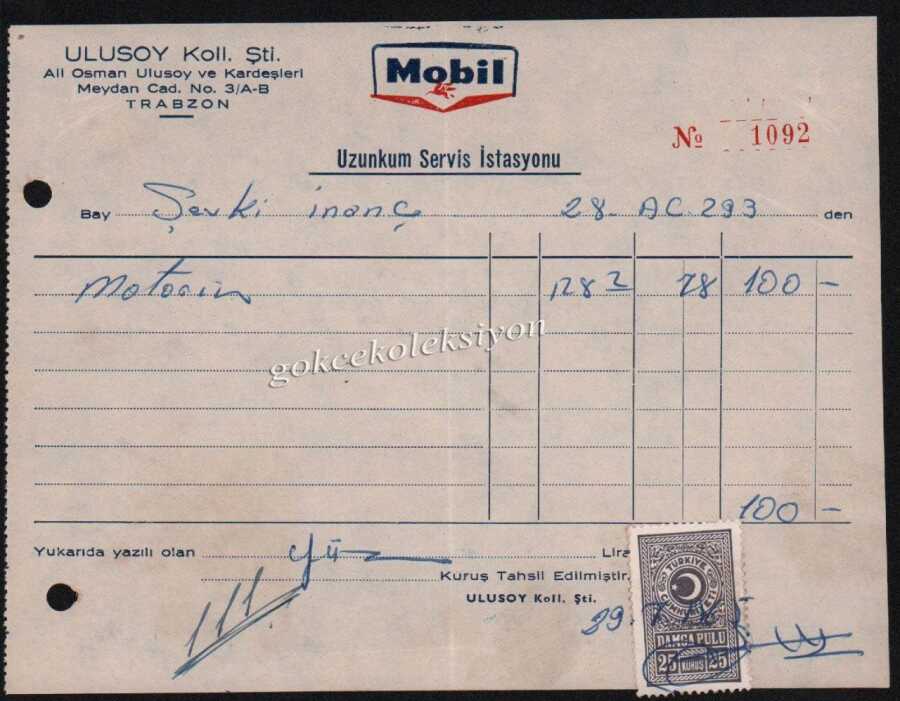 ULUSOY Koll. Şti.
Ali Osman Ulusoy ve Kardeşleri
Meydan Cad. No. 3/A-B
TRABZON
Mobil
№ 1092
Uzunkum Servis İstasyonu
Bay Şevki inanç 28. AC. 293 den
Motorin 128 2 78 100 -
gokcekoleksiyon
100 -
Yukarıda yazılı olan yüz Lira
Kuruş Tahsil Edilmiştir.
ULUSOY Koll. Şti.
29.
TÜRKİYE
DAMGA PULU
25 KURUŞ 25